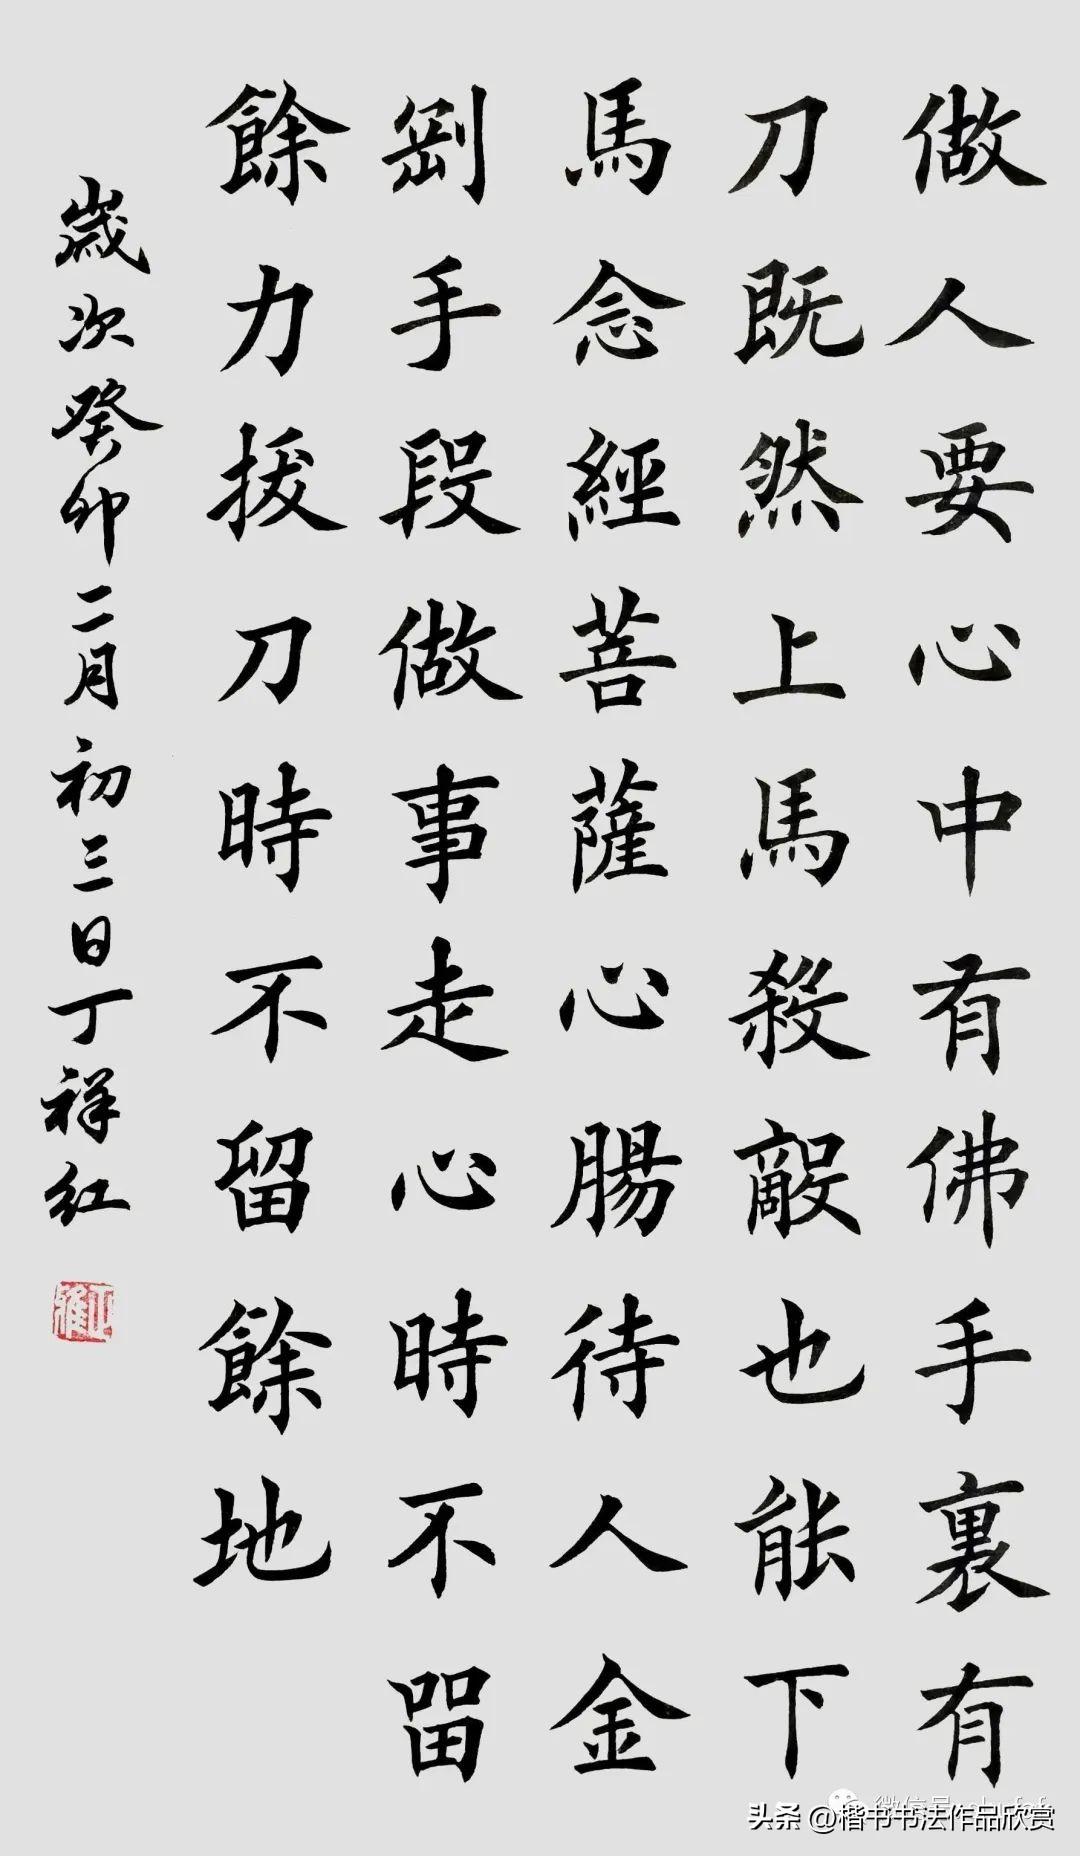 做人要心中有佛手裏有
刀既然上馬殺敵也能下
馬念經菩薩心腸待人金
剛手段做事走心時不留
餘力拔刀時不留餘地
歲次癸卯二月初三日丁祥红
正雅
微信号
头条 @楷书书法作品欣赏